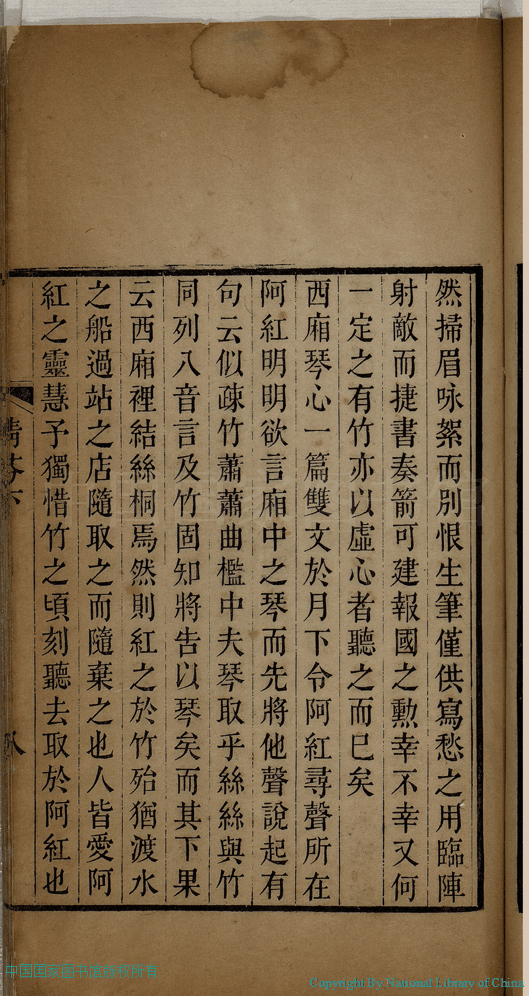 然掃眉咏絮而別恨生筆僅供寫愁之用臨陣
射敵而捷書奏箭可建報國之勲幸不幸又何
一定之有竹亦以虛心者聽之而已矣
西廂琴心一篇雙文於月下令阿紅尋聲所在
阿紅明明欲言廂中之琴而先將他聲說起有
句云似疎竹蕭蕭曲檻中夫琴取乎絲絲與竹
同列八音言及竹固知將告以琴矣而其下果
云西廂裡結絲桐焉然則紅之於竹殆猶渡水
之船過站之店隨取之而隨棄之也人皆愛阿
紅之靈慧予獨惜竹之頃刻聽去取於阿紅也
下
八
中国国家图书馆版权所有
Copyright By National Library of China